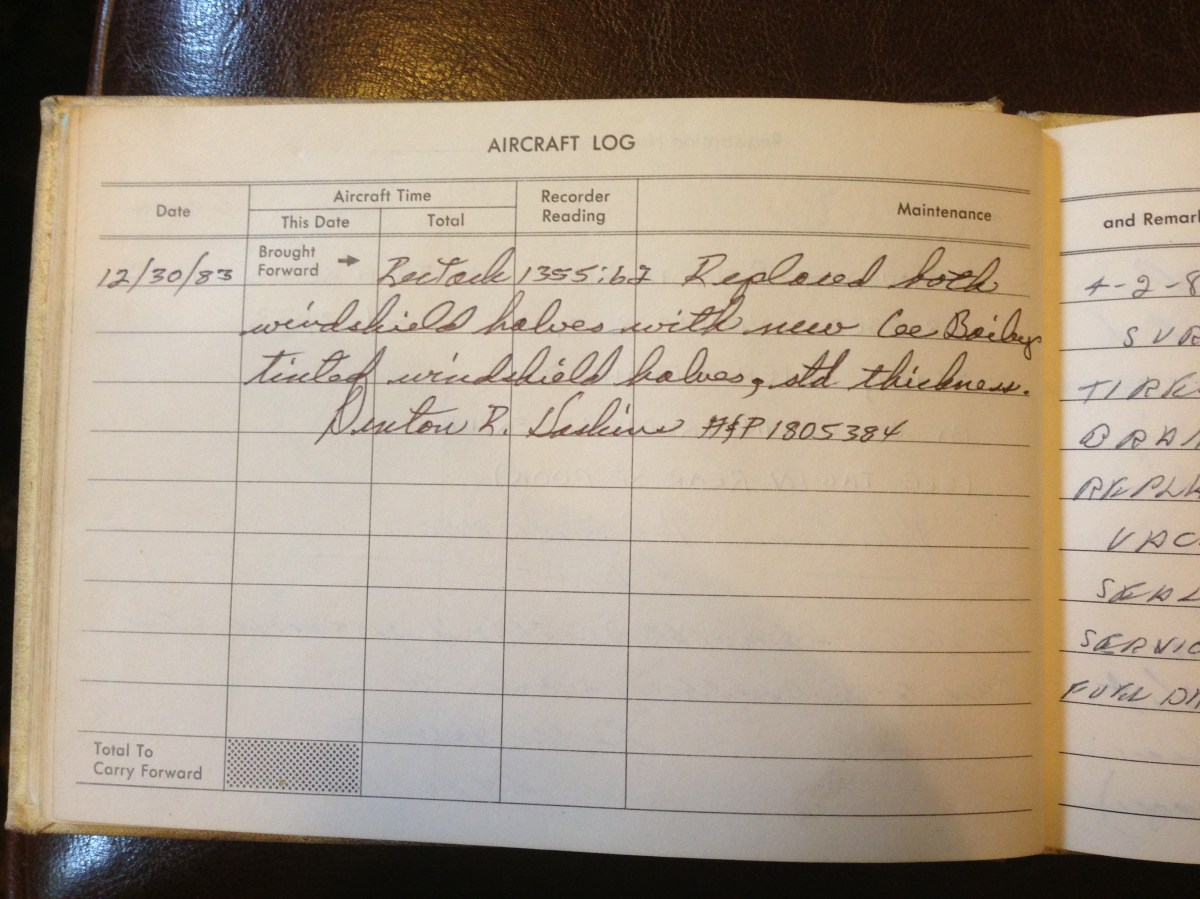 AIRCRAFT LOG
Date
Aircraft Time
This Date
Total
Recorder
Reading
Maintenance
Brought
Forward
12/30/83 1355:62 Replaced both
windshield halves with new Cee Baileys
tinted windshield halves, std thickness.
R. Haskins A&P 1805384
Total To
Carry Forward
and Remar
4-2-8
SUR
TIRE
REPL
VAC
SEAL
SERVIC
FUEL